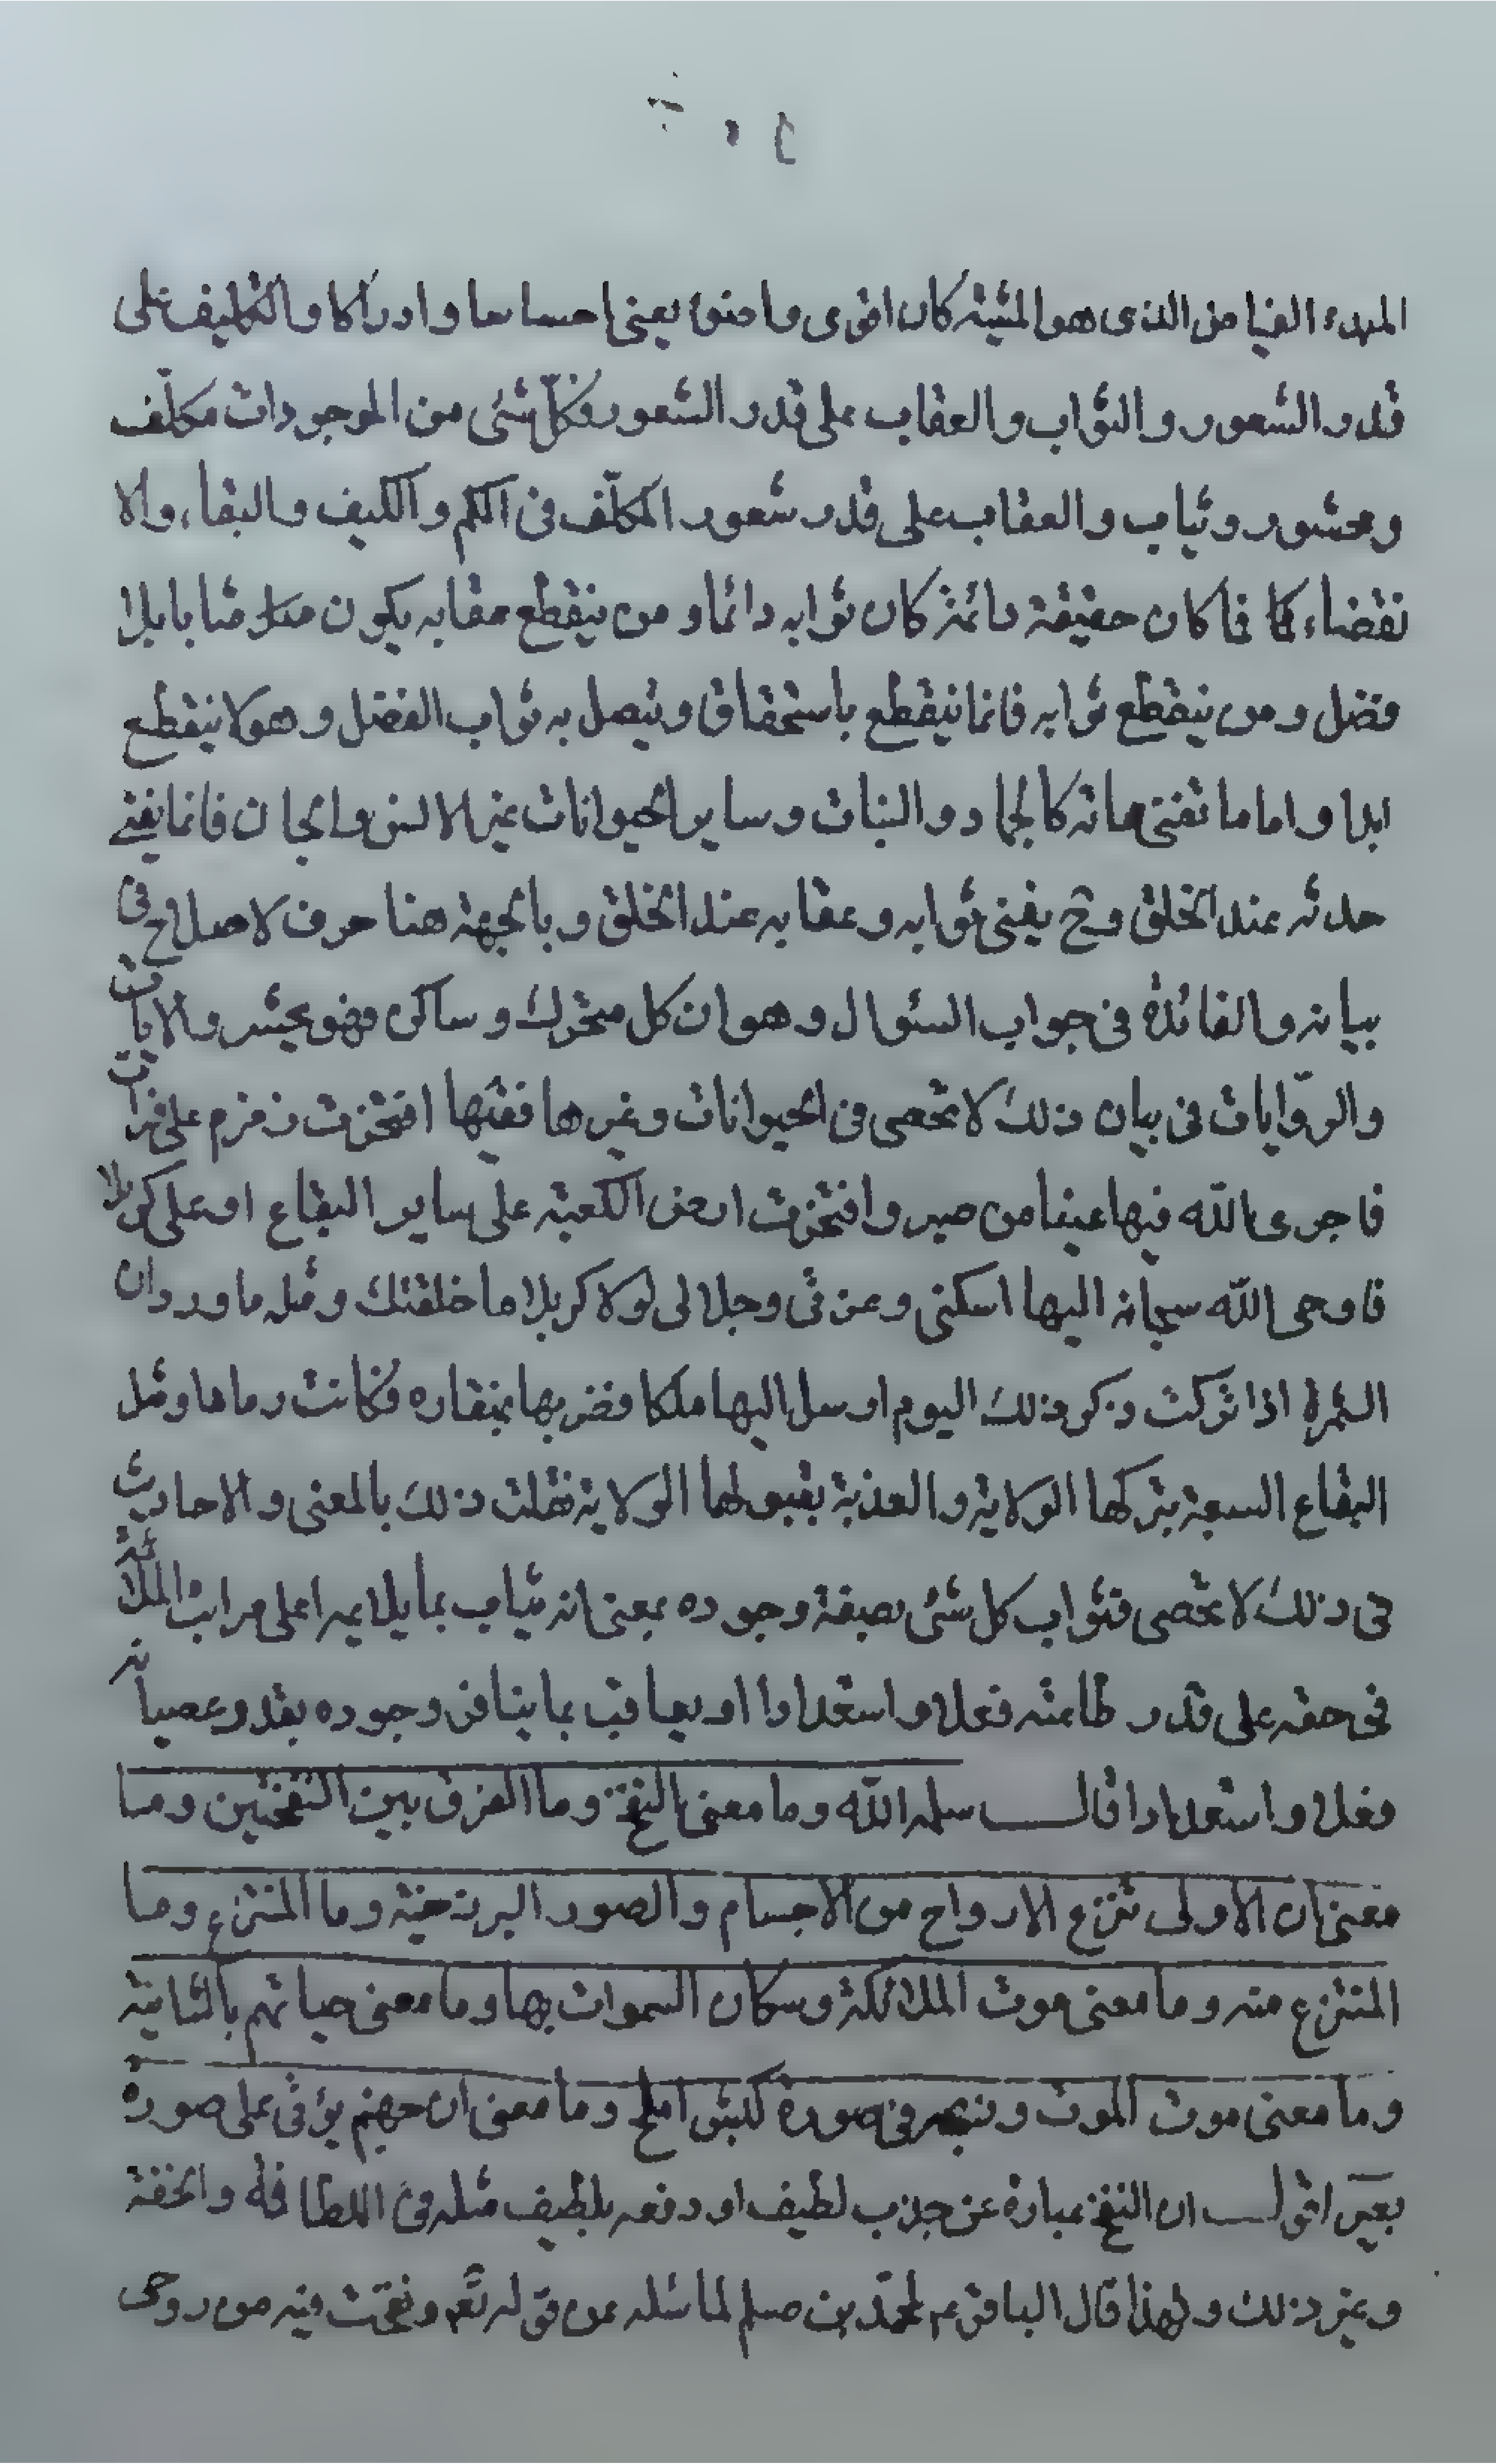 المبدء الفياض الذى هو المشية كان اقوى واضوء يعنى احساسا وادراكا والتكليف على
قدر الشعور والثواب والعقاب على قدر الشعور فكلّ شئ من الموجودات مكلّف
ومحشور ويثاب والعقاب على قدر شعور المكلّف فى الكم والكيف والبقاء والا
نقضاء كما فما كان حقيقة دائمة كان ثوابه دائما ومن ينقطع عقابه يكون مثابا بلا
فضل ومن ينقطع ثوابه فانما ينقطع باستحقاق ويتصل به ثواب الفضل وهو لا ينقطع
ابدا واما ما تفنى مادته كالجماد والنبات وساير الحيوانات غير الانس والجان فانما يفنى
حدثه عند الخلق وح يفنى ثوابه وعقابه عند الخلق وبالجهة هنا حرف لا صلاح فى
بيانه والفائدة فى جواب السئوال وهو ان كل متحرك وساكن فهو يحشر والايات
والرّوايات فى بيان ذلك لا تحصى فى الحيوانات وغيرها ففيها افتخرت زمزم على فرات
فاجرى الله فيها عينا من صبر وافتخرت ارض الكعبة على ساير البقاع او على كربلا
فاوحى اللّه سبحانه اليها اسكنى وعزتى وجلالى لولا كربلا ما خلقتك ومثله ما ورد ان
الثمرة اذا تركت ذكر ذلك اليوم ارسل اليها ملكا فضربها بمنقاره فكانت رماها ومثل
البقاع السبعة بتركها الولاية والعذبة بقبولها الولاية نقلت ذلك بالمعنى والاحاديث
فى ذلك لا تحصى فثواب كل شئ بصيغة وجوده بمعنى انه يثاب بما يلايمه اعلى مراتب الملائمة
فى حقه على قدر طاعته فعلا واستعدادا او يعاقب بما ينافى وجوده بقدر عصيانه
فعلا واستعدادا قال سلمه اللّه وما معنى النفخة وما الفرق بين النفختين وما
معنى ان الاولى تنزع الارواح من الاجسام والصور البرزخية وما المنتزع وما
المنتزع منه وما معنى موت الملائكة وسكان السموات بها وما معنى حياتهم بالثانية
وما معنى موت الموت وذبحه فى صورة كبش املح وما معنى ان جهنم يؤتى على صورة
بعير اقول ان النفخ عبارة عن جذب لطيف او دفعه بلطيف مثله فى اللطافة والخفة
وغير ذلك ولهذا قال الباقر ع لمحمّد بن مسلم لما سئله عن قوله تعم ونفخت فيه من روحى